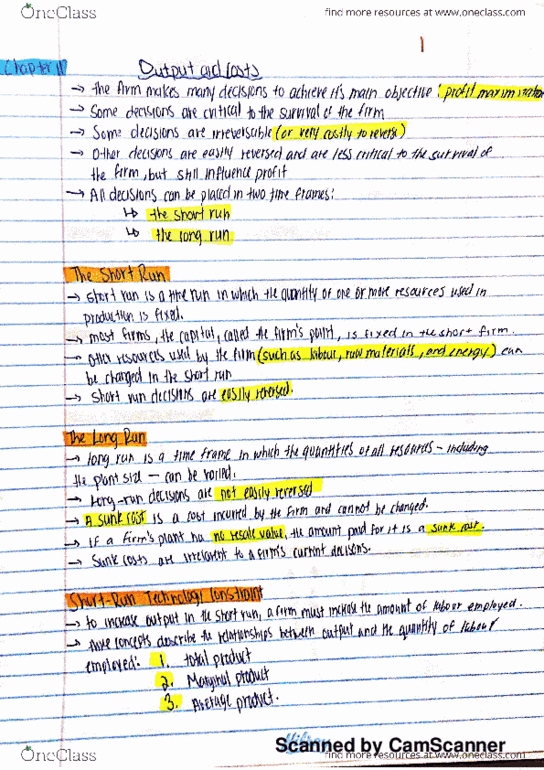 OneClass
find more resources at www.oneclass.com
1
Chapter 11
Output and costs
→ the firm makes many decisions to achieve it's main objective: profit maximization
→ Some decisions are critical to the survival of the firm
→ Some decisions are irreversible (or very costly to reverse)
→ Other decisions are easily reversed and are less critical to the survival of
the firm, but still influence profit
→ All decisions can be placed in two time frames:
↳ the short run
↳ the long run
The Short Run
→ short run is a time run in which the quantity of one or more resources used in
production is fixed.
→ most firms, the capital, called the firm's point, is fixed in the short firm.
→ other resources used by the firm (such as labour, raw materials, and energy) can
be changed in the short run
→ short run decisions are easily reversed.
The Long Run
→ long run is a time frame in which the quantities of all resources - including
the plant size - can be varied.
→ Long-run decisions are not easily reversed
→ A sunk cost is a cost incurred by the firm and cannot be changed.
→ if a firm's plant has no resale value, the amount paid for it is a sunk cost.
→ Sunk costs are irrelevant to a firm's current decisions.
Short-Run Technology Constraint
→ to increase output in the short run, a firm must increase the amount of labour employed.
→ three concepts describe the relationships between output and the quantity of labour
employed: 1. total product
2. Marginal product
3. Average product.
OneClass
Scanned by CamScanner
find more resources at www.oneclass.com